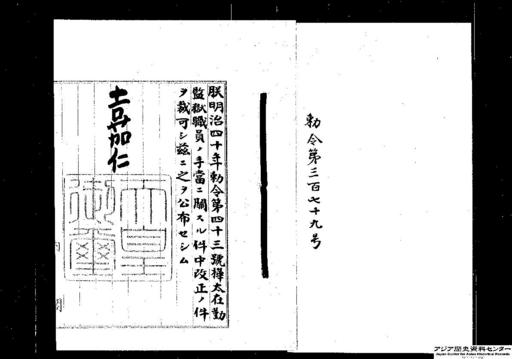 勅令第三百七十九号
朕明治四十年勅令第四十三號樺太在勤
監獄職員ノ手當ニ關スル件中改正ノ件
ヲ裁可シ茲ニ之ヲ公布セシム
嘉仁
天皇御璽
アジア歴史資料センター
Japan Center for Asian Historical Records